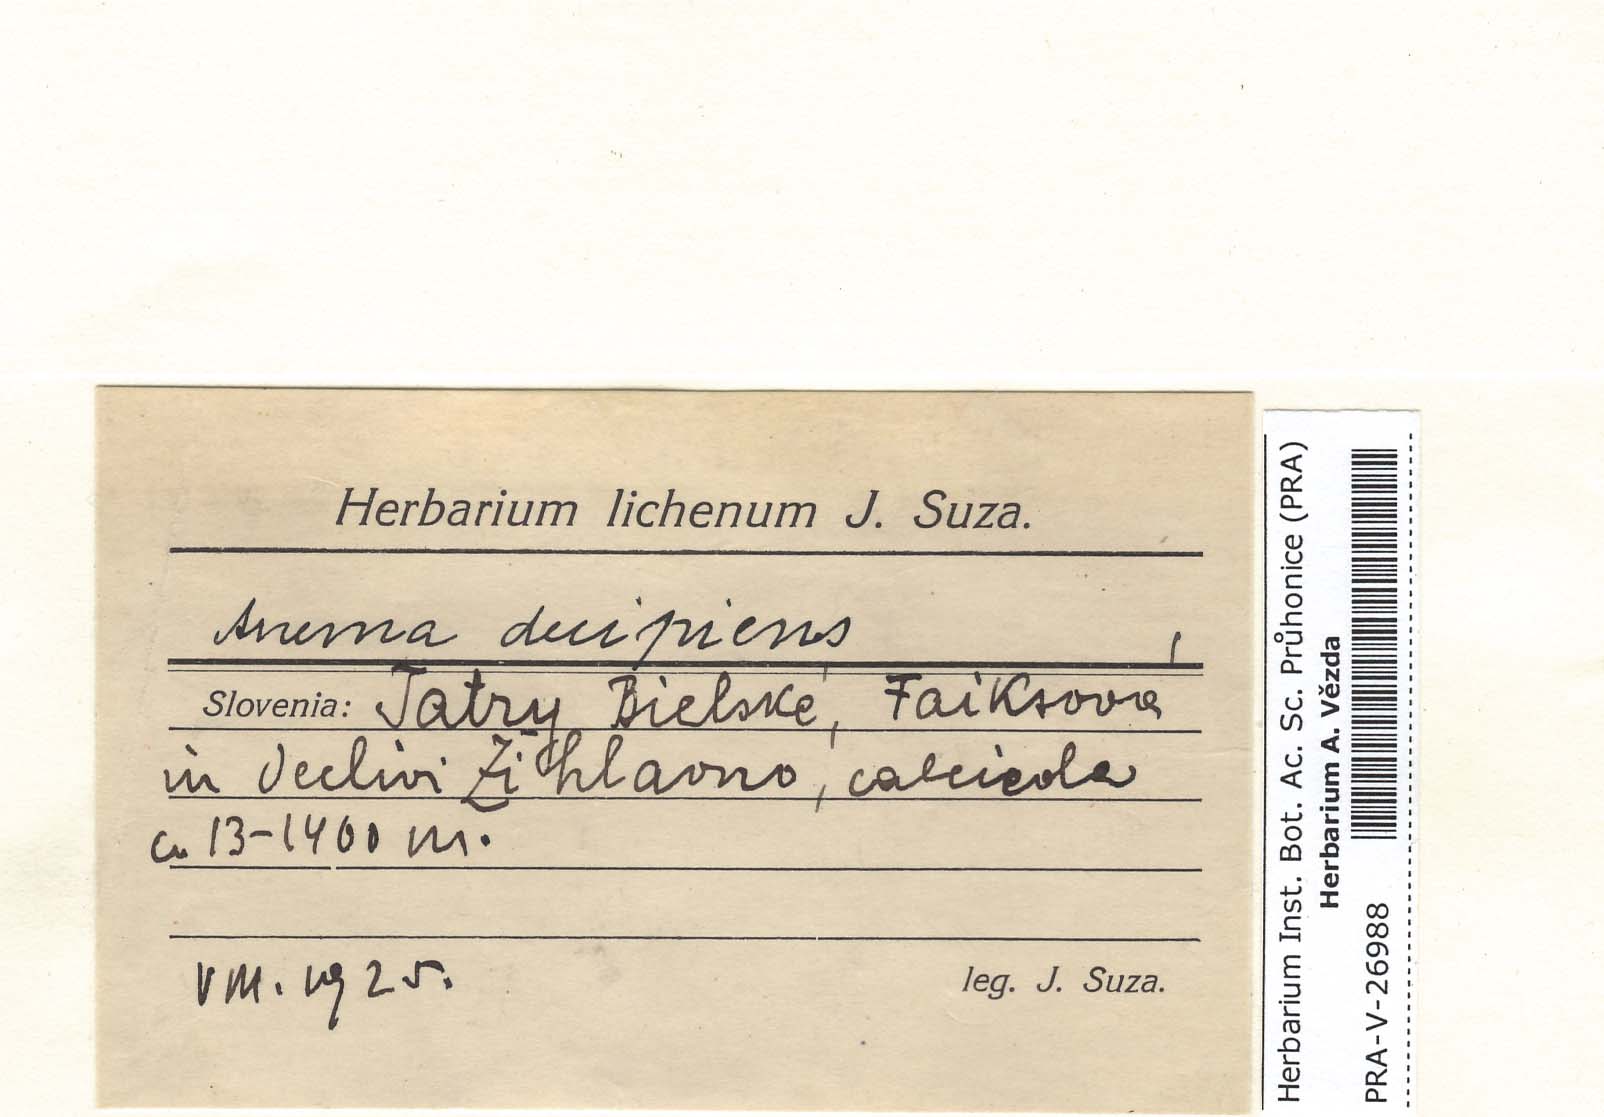 Herbarium lichenum J. Suza.
Anema decipiens
Slovenia: Tatry Bielské, Faiksova
in declivi Žihlavno, calcicola
ca 13-1400 m.
VIII. 1925.
leg. J. Suza.
Herbarium Inst. Bot. Ac. Sc. Průhonice (PRA)
Herbarium A. Vězda
PRA-V-26988